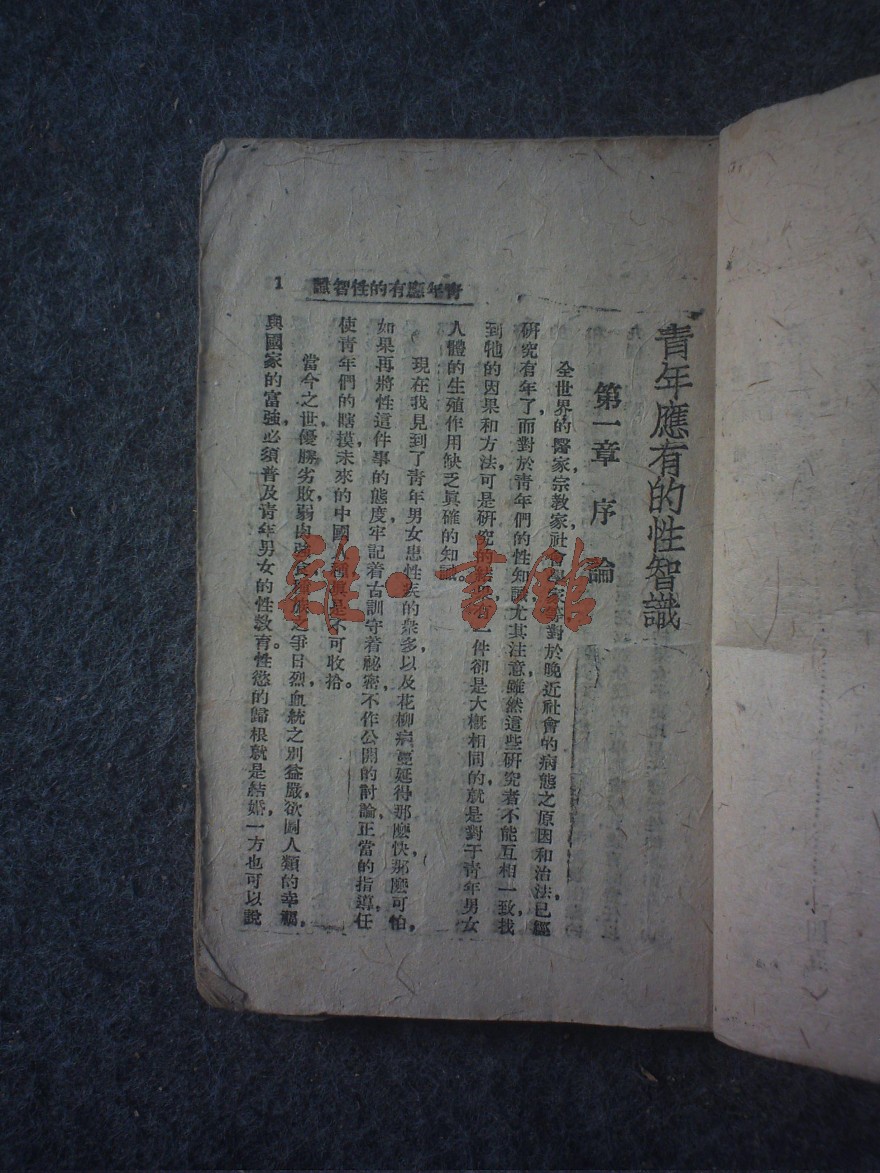 青年應有的性智識
第一章 序論
全世界的醫家,宗教家,社會學家等對於晚近社會的病態之原因和治法,已經
研究有年了,而對於青年們的性知識,尤其注意,雖然這些研究者,不能互相一致,找
到牠的因果和方法,可是研究的結果,有一件卻是大概相同的,就是對于青年男女
人體的生殖作用,缺乏真確的知識。
現在我見到了青年男女患性疾的衆多,以及花柳病蔓延得那麼快,那麼可怕,
如果再將性這件事的態度,牢記着古訓,守着祕密,不作公開的討論,正當的指導,任
使青年們的瞎摸,未來的中國人種,真是不可收拾。
當今之世,優勝劣敗,弱肉強食,種族之爭日烈,血統之別益嚴,欲圖人類的幸福,
與國家的富強,必須普及青年男女的性教育。性慾的歸根就是結婚,一方也可以說
青年應有的性智識
1
雜·書館